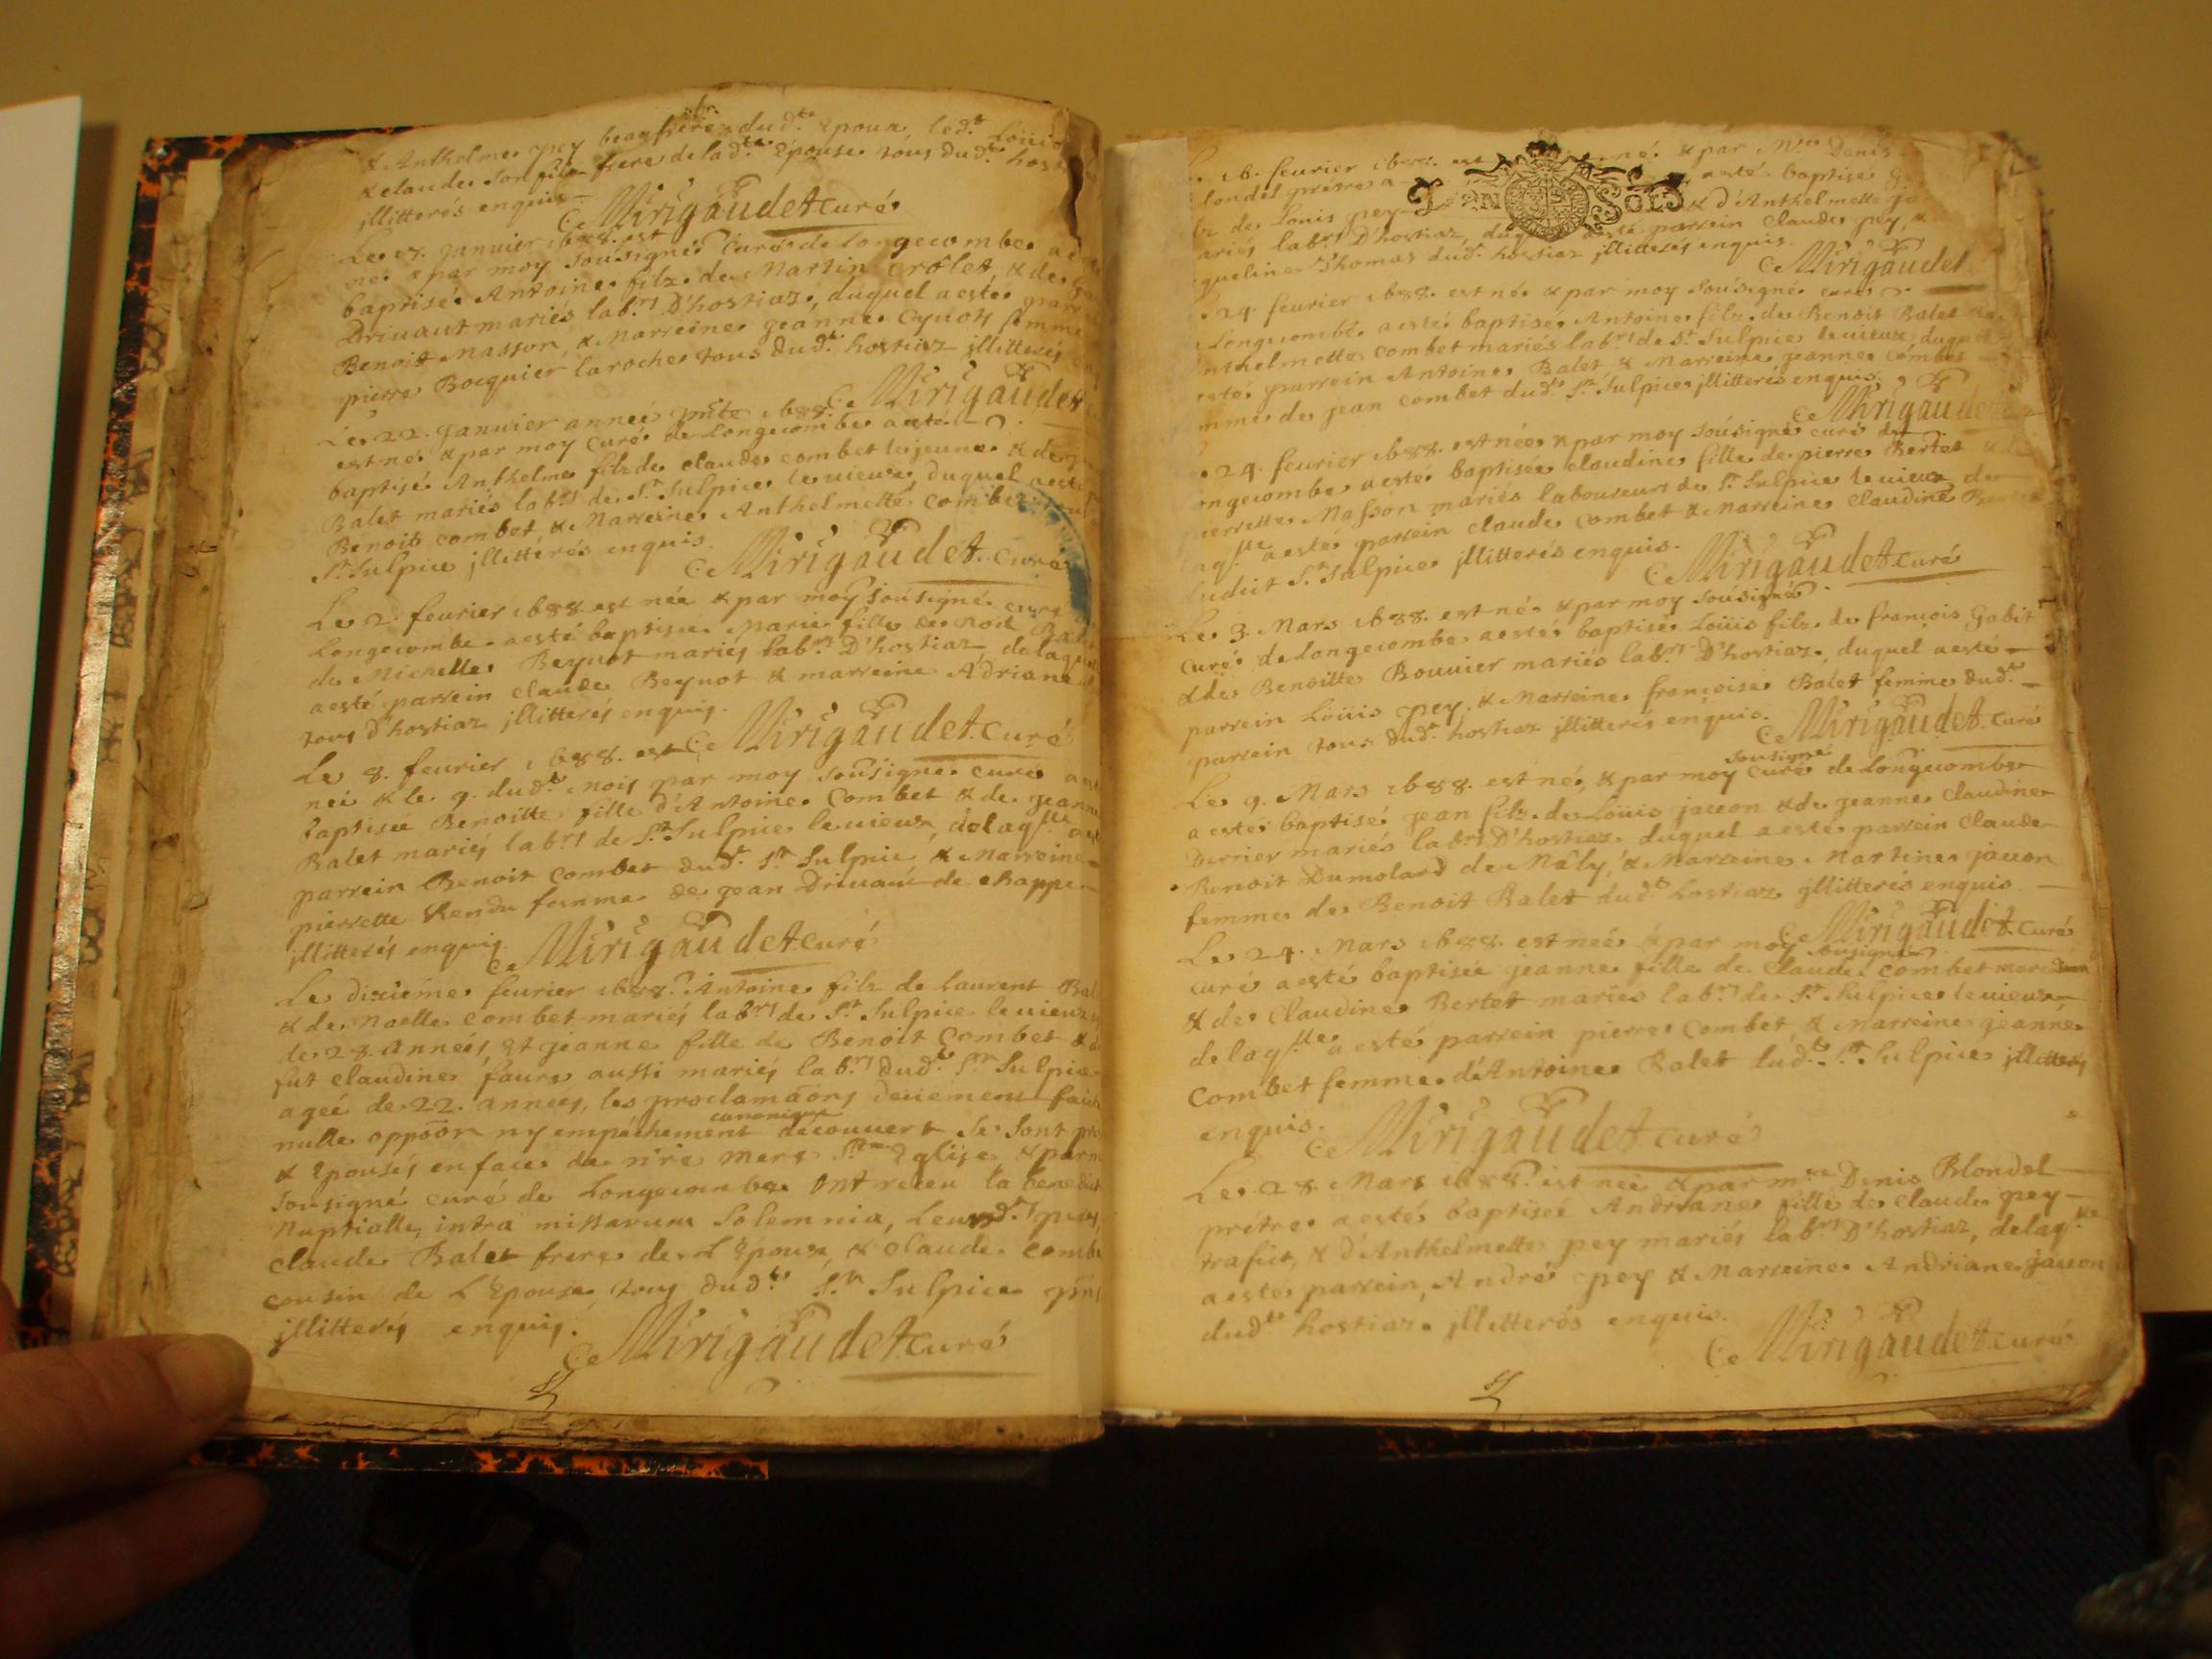 & Anthelme pey beaufrere dud.t Epoux, led.t Loüis
& claude son filz frere de lad.te Epouse tous dud.t host
jllitterés enquis
C Mirigaudet curé
Le 17. Januier 1688. est
né & par moy sousigné Curé de Longecombe a
baptisé Antoine filz de Martin Crôlet, & de
Driuaut mariés lab.rs D'hostiaz, duquel a esté par
Benoit Masson, & Marreine Jeanne Cyuot femme
pierre Bocquier laroche tous dud.t hostiaz jllitterés
C Mirigaudet
Le 22. Januier anneé pnte 1688.
est né & par moy curé de Longecombe a esté
baptisé Anthelme filz de claude combet le jeune & de
Balet mariés lab.rs de S.t Sulpice le vieux, duquel a esté
Benoit combet, & Marreine Anthelmette combet
S.t Sulpice jllitterés enquis.
C Mirigaudet Curé
Le 2. feurier 1688 est née & par moy sousigné curé
Longecombe a esté baptisée Marie fille de Noel Balet
de Michelle Beynot mariés lab.rs D'hostiaz, de laquelle
a esté parrein claude Beynot & marreine Adriane
tous d'hostiaz jllitterés enquis.
C Mirigaudet Curé
Le 8. feurier 1688. est
neé & le 9. dud.t mois par moy sousigné curé a est
baptisée Benoitte fille d'Antoine Combet & de Jeanne
Balet mariés lab.rs de S.t Sulpice le vieux, de laq.lle a est
parrein Benoit Combet dud.t S.t Sulpice & Marreine
pierrette Rendu femme de Jean Driuaut de chappe
jllitterés enquis.
C Mirigaudet curé
Le dixiéme feurier 1688. Antoine filz de Laurent Bal
& de Noelle combet mariés lab.rs de S.t Sulpice le vieux
de 28. Anneés, Et Jeanne fille de Benoît Combet & d
fut Claudine faure aussi mariés lab.rs dud.t S.t Sulpice
ageé de 22. anneés, les proclamaõns deüement faite
nulle oppoõn ny empéchement canonique découuert se sont pre
& Epousés en face de n're Mere S.te Eglise & par m
sousigné curé de Longecombe ont receu la benedict
Nuptialle, intra missarum Solemnia, Leursd.ts peres,
claude Balet frere de L'Epoux, & claude combe
cousin de L'Epouse tous dud.t S.t Sulpice pñs
jllitterés enquis.
C Mirigaudet Curé
16. feurier 1688. est né & par M.re Denis
londel prétre a esté baptisé
lz de Louis pey & d'Anthelmette
ariés lab.rs D'hostiaz, duq a esté parrein claude pey, &
queline Thomas dud.t hostiaz jllitterés enquis.
C Mirigaudet
24. feurier 1688. est né & par moy sousigné curé
Longecombe a esté baptisé Antoine filz de Benoit Balet
nthelmette combet mariés lab.rs de S.t Sulpice le vieux duquel
esté parrein Antoine Balet & Marreine Jeanne combet
mme de jean combet dud.t S.t Sulpice jllitterés enquis.
C Mirigaudet
24. feurier 1688. est née & par moy sousigné curé de
ongecombe a esté baptisée claudine fille de pierre Bertet &
pierrette Masson mariés laboureurs de S.t Sulpice le vieux de
laq.lle a esté parrein claude combet & Marreine claudine
dudit S.t Sulpice jllitterés enquis.
C Mirigaudet curé
Le 3. Mars 1688. est né & par moy sousigné
curé de Longecombe a esté baptisé Loüis filz de françois Gabit
& de Benoitte Bouuier mariés lab.rs D'hostiaz, duquel a esté
parrein Loüis pey, & Marreine françoise Balet femme dud.t
parrein tous dud.t hostiaz jllitterés enquis.
C Mirigaudet Curé
Le 9. Mars 1688. est né, & par moy sousigné curé de Longecombe
a esté baptisé jean filz de Loüis jacon & de jeanne claudine
Derrier mariés lab.rs D'hostiaz duquel a esté parrein claude
Benoit Dumolard de Mâly, & Marreine Martine jacon
femme de Benoit Balet dud.t hostiaz jllitterés enquis.
C Mirigaudet curé
Le 24. Mars 1688. est neé & par moy sousigné
curé a esté baptisée jeanne fille de claude combet
& de claudine Bertet mariés lab.rs de S.t Sulpice le vieux
de laq.lle a esté parrein pierre combet, & Marreine jeanne
combet femme d'Antoine Balet dud.t S.t Sulpice jllitterés
enquis.
C Mirigaudet curé
Le 28. Mars 1688. est neé & par m.re Denis Blondel
prétre a esté baptisée Andriane fille de claude pey
trafict, & d'Anthelmette pey mariés lab.rs D'hostiaz, de laq.lle
a esté parrein, André pey & Marreine Andriane jacon
dud.t hostiaz jllitterés enquis.
C Mirigaudet curé